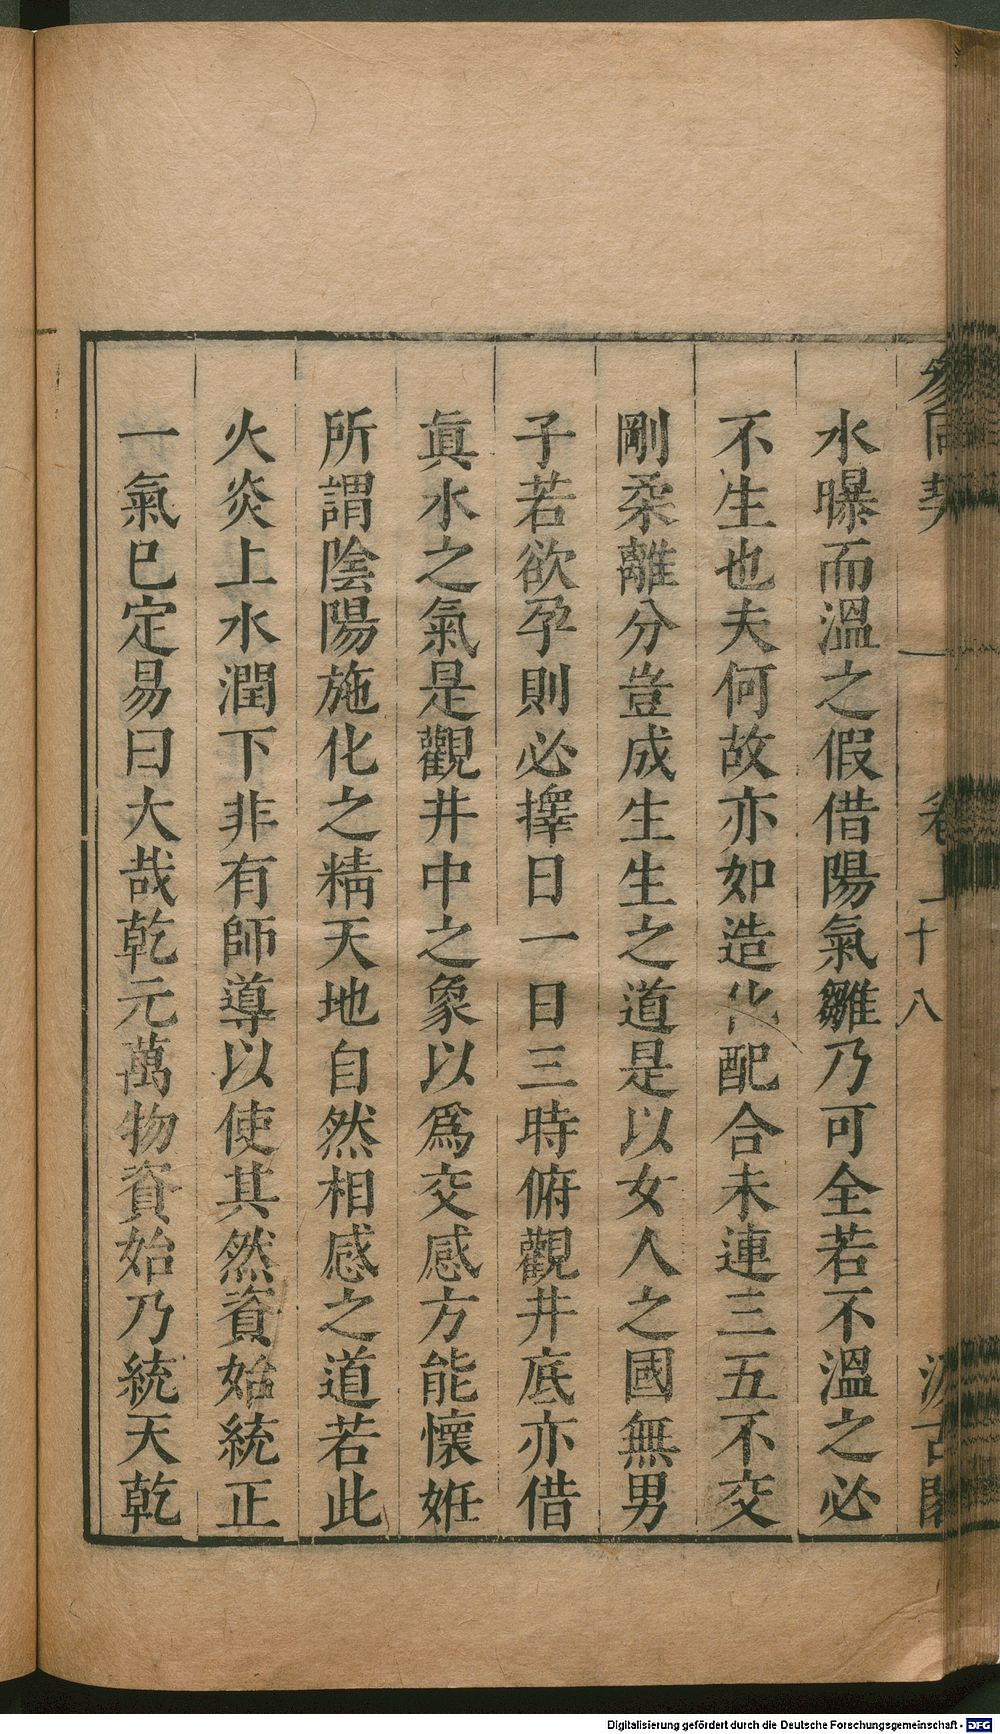 參同契 卷上 十八 汲古閣
水曝而溫之假借陽氣雛乃可全若不溫之必
不生也夫何故亦如造化配合未連三五不交
剛柔離分豈成生生之道是以女人之國無男
子若欲孕則必擇日一日三時俯觀井底亦借
眞水之氣是觀井中之象以爲交感方能懷姙
所謂陰陽施化之精天地自然相感之道若此
火炎上水潤下非有師導以使其然資始統正
一氣已定易曰大哉乾元萬物資始乃統天乾
Digitalisierung gefördert durch die Deutsche Forschungsgemeinschaft - DFG